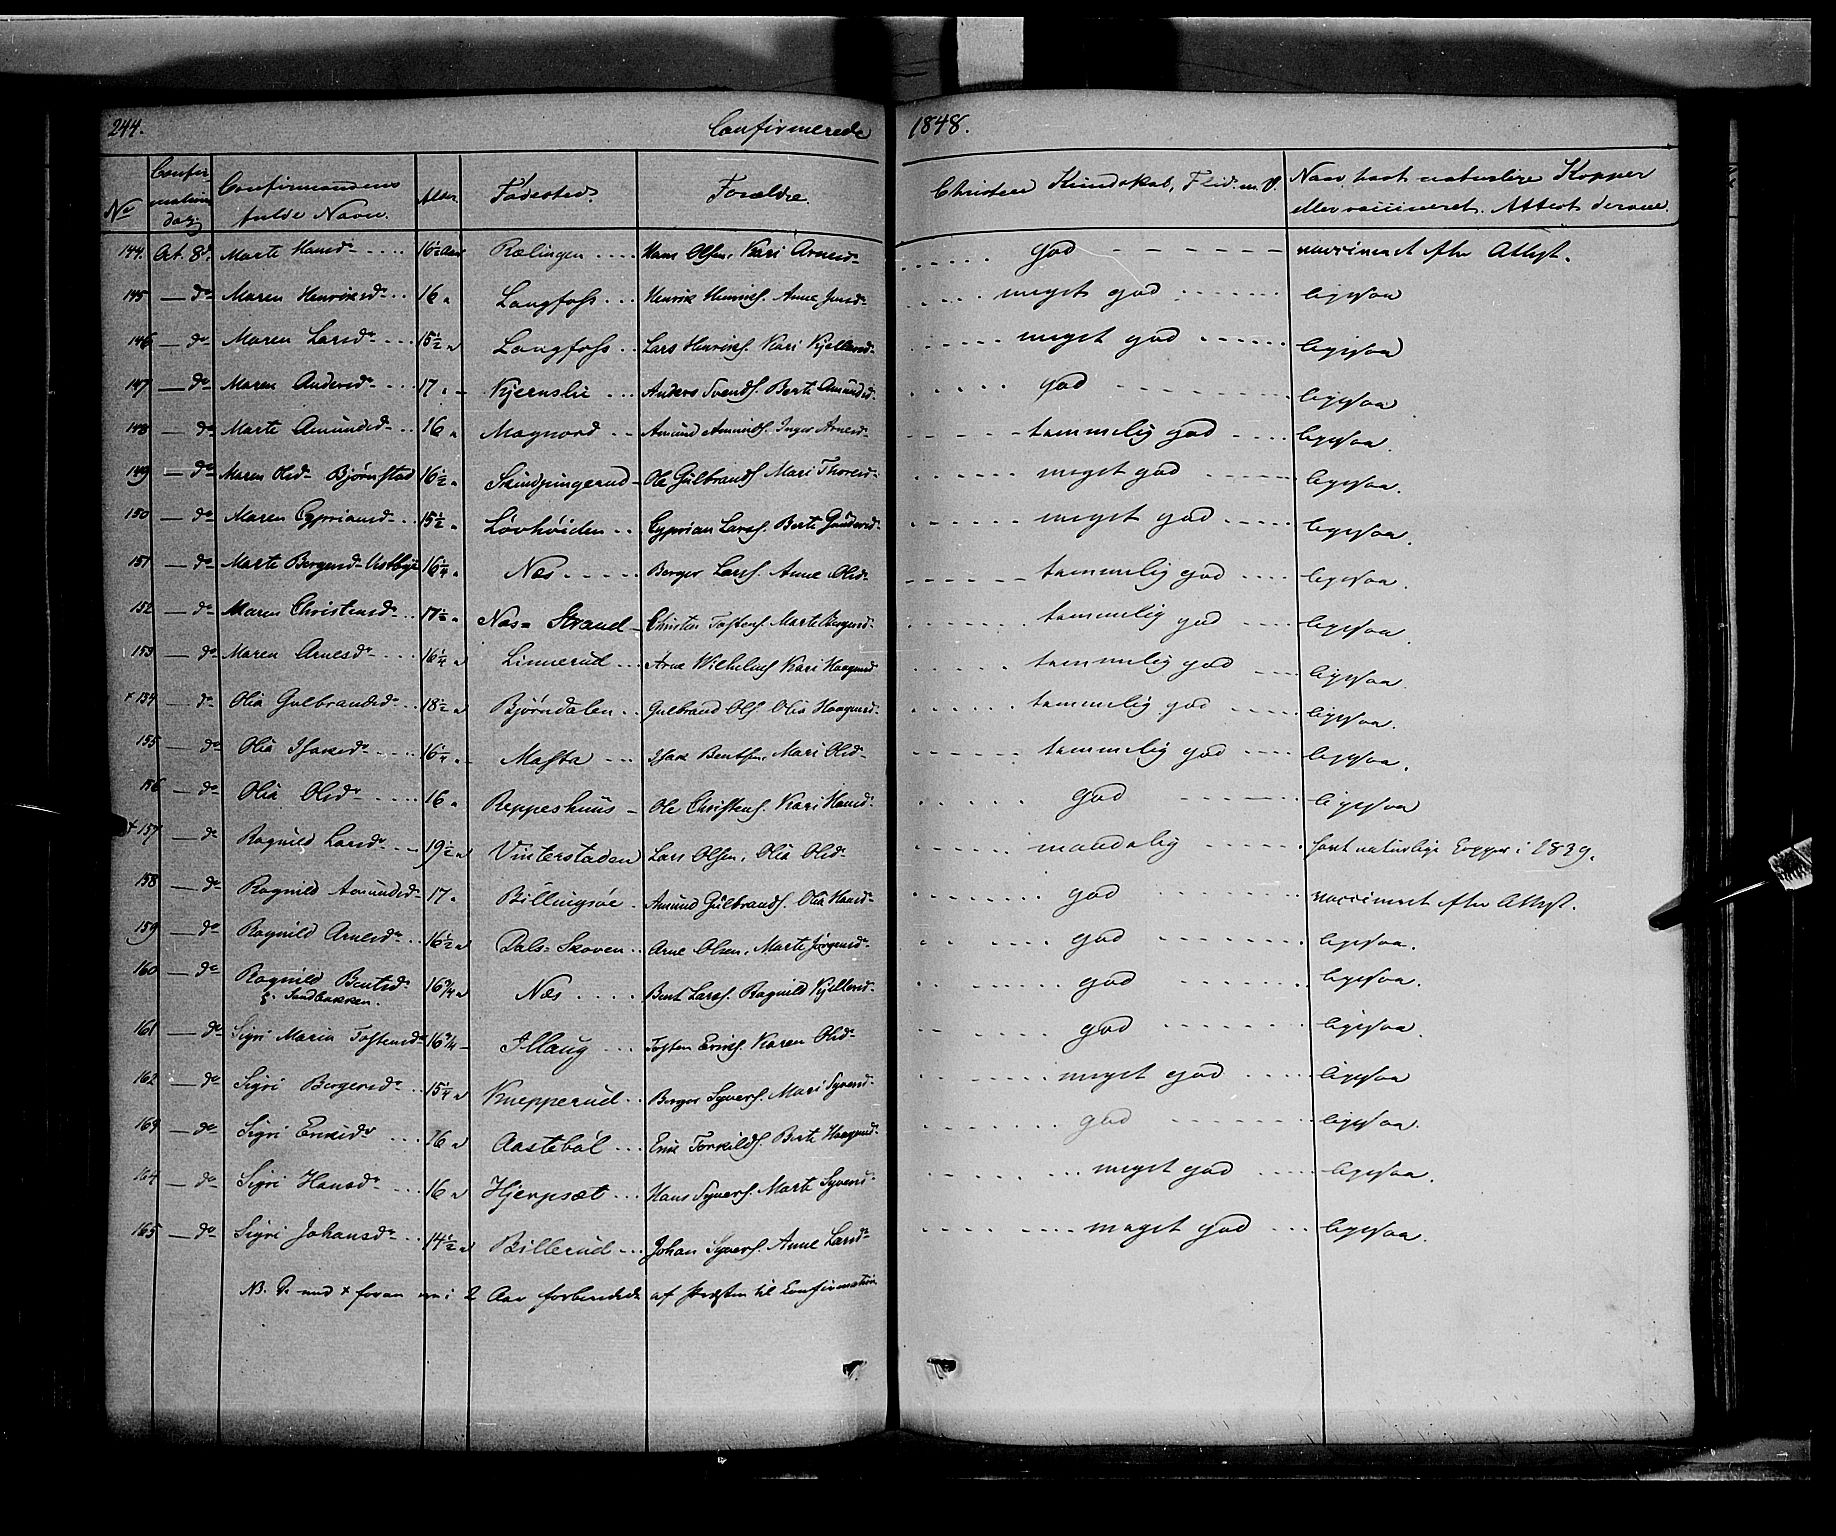 244. Confirmerede 1848.
No Confirmations dag Confirmandens fulde Navn. Alder Fødested. Forældre. Christend. Kundskab, Flid. m. V. Naar havt naturlige Kopper eller vaccineret. Attest derom.
144. Oct. 8d. Marte Hansdr 16½ Aar Rælingen Hans Olsen, Kari Arnesdr god vaccineret efter Attest.
145 — do Maren Henriksdr 16 " Langfoss Henrik Henriks. Anne Jensdr meget god ligesaa
146 — do Maren Larsdr 15½ " Langfoss Lars Henriks. Kari Kjellsdr meget god ligesaa
147 — do Maren Andersdr 17 " Kjernslie Anders Svends. Berte Amundsdr god ligesaa
148 — do Marte Amundsdr 16 " Magnord Amund Amunds. Inger Arnesdr temmelig god ligesaa.
149 — do Maren Olsdr Bjørnstad 16½ " Skindpungerud Ole Gulbrands. Mari Thoresdr meget god ligesaa.
150 — do Maren Cypriansd 15½ " Løvhøiden Cyprian Larss. Berte Gundersd meget god ligesaa.
151 — do Marte Bergersdr Vestbye 16¼ " Næs Berger Larss. Anne Olsdr temmelig god ligesaa.
152 — do Maren Christensdr 17½ " Næs= Strand Christen Tostens. Marte Bergersdr temmelig god ligesaa.
153 — do Maren Arnesdr 16¼ " Linnerud Arne Wilhelms. Kari Haagensd temmelig god ligesaa.
+ 154 — do Olia Gulbrandsdr 18½ " Bjørndalen Gulbrand Ols. Olia Haagensdr temmelig god ligesaa.
155 — do Olia Isaksdr 16¼ " Masta Isak Bentsen, Mari Olsdr temmelig god ligesaa.
156 — do Olia Olsdr 16 " Reppeshuus Ole Christens. Kari Hansdr god ligesaa
+ 157 — do Ragnild Larsdr 19½ " Vinterstaden Lars Olsen, Olia Olsdr maadelig havt naturlige Kopper i 1839.
158 — do Ragnild Amundsdr 17 " Billingsøe Amund Gulbrands. Olia Hansdr god vaccineret efter Attest.
159 — do Ragnild Arnesdr 16½ " Dals= Skoven Arne Olsen, Marte Jørgensdr god ligesaa.
160 — do Ragnild Bentsdr Sandbakken. 16¾ " Næs Bent Larss. Ragnild Kjellsdr god ligesaa.
161 — do Sigri Maria Tostensdr 16¾ Illaug Tosten Eriks. Karen Olsdr god ligesaa.
162 — do Sigri Bergersdr 15¼ " Knepperud Berger Syvers. Mari Syversdr meget god ligesaa
163 — do Sigri Eriksdr 16 " Aastebøl Erik Torkilds. Berte Haagensdr god ligesaa.
164 — do Sigri Hansdr 16 " Hjerpsæt Hans Syvers. Marte Syversdr meget god ligesaa.
165 — do Sigri Johansdr 14½ " Billerud Johan Syvers. Anne Larsdr meget god ligesaa.
NB. De med + foran ere i 2 Aar forberedede af Præsten til Confirmation